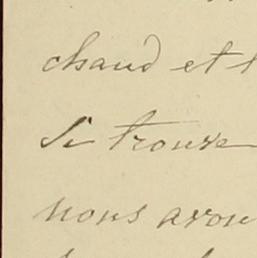 chaud et
Se trouve
nous avon